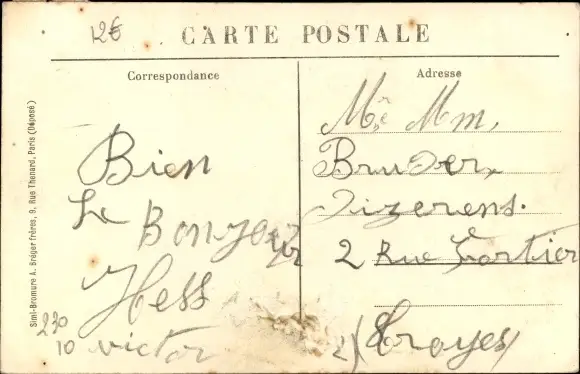 12€
CARTE POSTALE
Correspondance
Adresse
Simi-Bromure A. Breger frères, 9, Rue Thenard, Paris (Déposé)
Bien
Le Bonjour
Hess
victor
230
10
Mr. Mm,
Bruder,
Tizerens.
2 Rue Cortier
Troyes